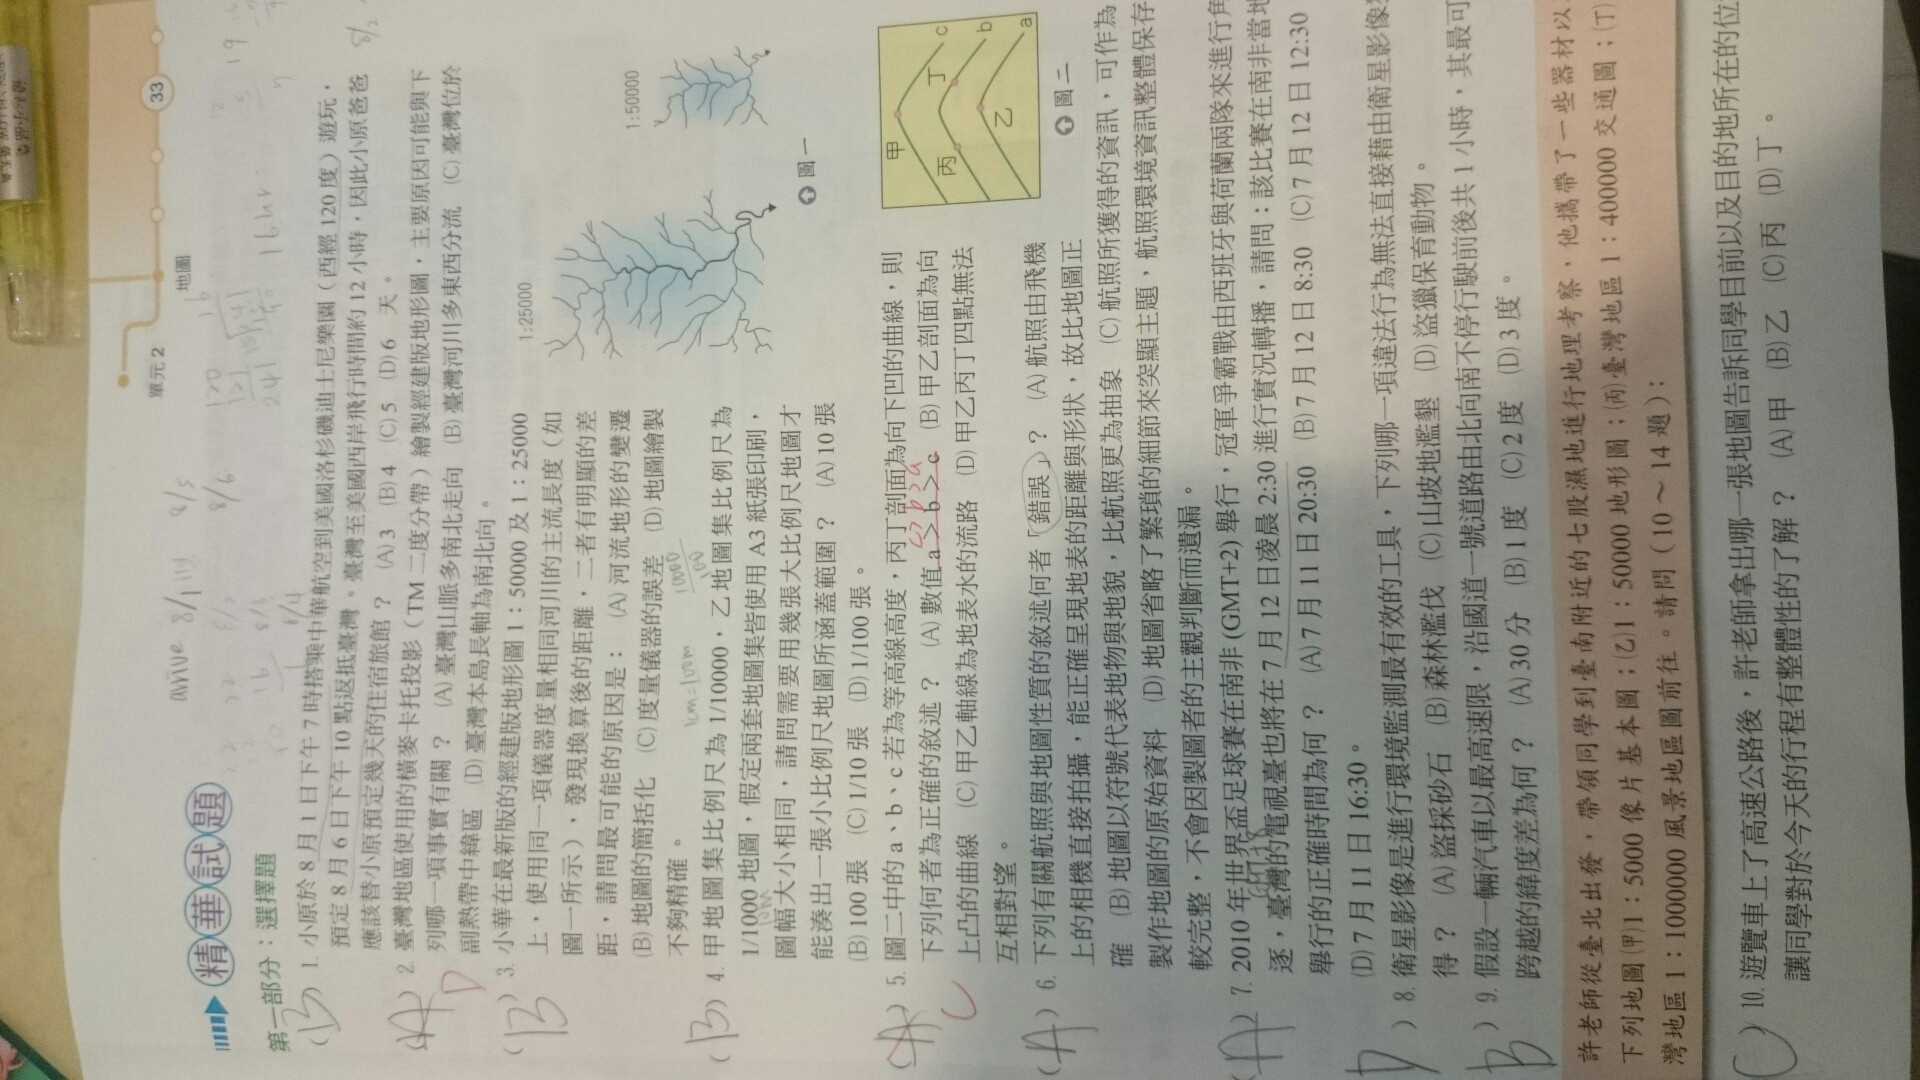 單元 2
地圖
33
精華試題
第一部分：選擇題
(B) 1. 小原於 8 月 1 日下午 7 時搭乘中華航空到美國洛杉磯迪士尼樂園（西經 120 度）遊玩，
預定 8 月 6 日下午 10 點返抵臺灣。臺灣至美國西岸飛行時間約 12 小時，因此小原爸爸
應該替小原預定幾天的住宿旅館？ (A) 3 (B) 4 (C) 5 (D) 6 天。
(A) 2. 臺灣地區使用的橫麥卡托投影（TM 二度分帶）繪製經建版地形圖，主要原因可能與下
D
列哪一項事實有關？ (A) 臺灣山脈多南北走向 (B) 臺灣河川多東西分流 (C) 臺灣位於
副熱帶中緯區 (D) 臺灣本島長軸為南北向。
(B) 3. 小華在最新版的經建版地形圖 1：50000 及 1：25000
上，使用同一項儀器度量相同河川的主流長度（如
圖一所示），發現換算後的距離，二者有明顯的差
距，請問最可能的原因是： (A) 河流地形的變遷
(B) 地圖的簡括化 (C) 度量儀器的誤差 (D) 地圖繪製
不夠精確。
1:25000
1:50000
圖一
(B) 4. 甲地圖集比例尺為 1/10000，乙地圖集比例尺為
1/1000 地圖，假定兩套地圖集皆使用 A3 紙張印刷，
圖幅大小相同，請問需要用幾張大比例尺地圖才
能湊出一張小比例尺地圖所涵蓋範圍？ (A) 10 張
(B) 100 張 (C) 1/10 張 (D) 1/100 張。
1cm=100m
(A) 5. 圖二中的 a、b、c 若為等高線高度，丙丁剖面為向下凹的曲線，則
C
下列何者為正確的敘述？ (A) 數值 a＞b＞c (B) 甲乙剖面為向
上凸的曲線 (C) 甲乙軸線為地表水的流路 (D) 甲乙丙丁四點無法
互相對望。
甲
乙
丙
丁
a
b
c
圖二
(A) 6. 下列有關航照與地圖性質的敘述何者「錯誤」？ (A) 航照由飛機
上的相機直接拍攝，能正確呈現地表的距離與形狀，故比地圖正
確 (B) 地圖以符號代表地物與地貌，比航照更為抽象 (C) 航照所獲得的資訊，可作為
製作地圖的原始資料 (D) 地圖省略了繁瑣的細節來突顯主題，航照環境資訊整體保存
較完整，不會因製圖者的主觀判斷而遺漏。
(A) 7. 2010 年世界盃足球賽在南非 (GMT+2) 舉行，冠軍爭霸戰由西班牙與荷蘭兩隊來進行角
逐，臺灣的電視臺也將在 7 月 12 日凌晨 2:30 進行實況轉播，請問：該比賽在南非當地
舉行的正確時間為何？ (A) 7 月 11 日 20:30 (B) 7 月 12 日 8:30 (C) 7 月 12 日 12:30
(D) 7 月 11 日 16:30。
D ) 8. 衛星影像是進行環境監測最有效的工具，下列哪一項違法行為無法直接藉由衛星影像
得？ (A) 盜採砂石 (B) 森林濫伐 (C) 山坡地濫墾 (D) 盜獵保育動物。
b ) 9. 假設一輛汽車以最高速限，沿國道一號道路由北向南不停行駛前後共 1 小時，其最可
跨越的緯度差為何？ (A) 30 分 (B) 1 度 (C) 2 度 (D) 3 度。
許老師從臺北出發，帶領同學到臺南附近的七股濕地進行地理考察，他攜帶了一些器材以
下列地圖 (甲) 1：5000 像片基本圖；(乙) 1：50000 地形圖；(丙) 臺灣地區 1：400000 交通圖；(丁)
灣地區 1：1000000 風景地區圖前往。請問（10 ～ 14 題）：
C ) 10. 遊覽車上了高速公路後，許老師拿出哪一張地圖告訴同學目前以及目的地所在的位
讓同學對於今天的行程有整體性的了解？ (A) 甲 (B) 乙 (C) 丙 (D) 丁。